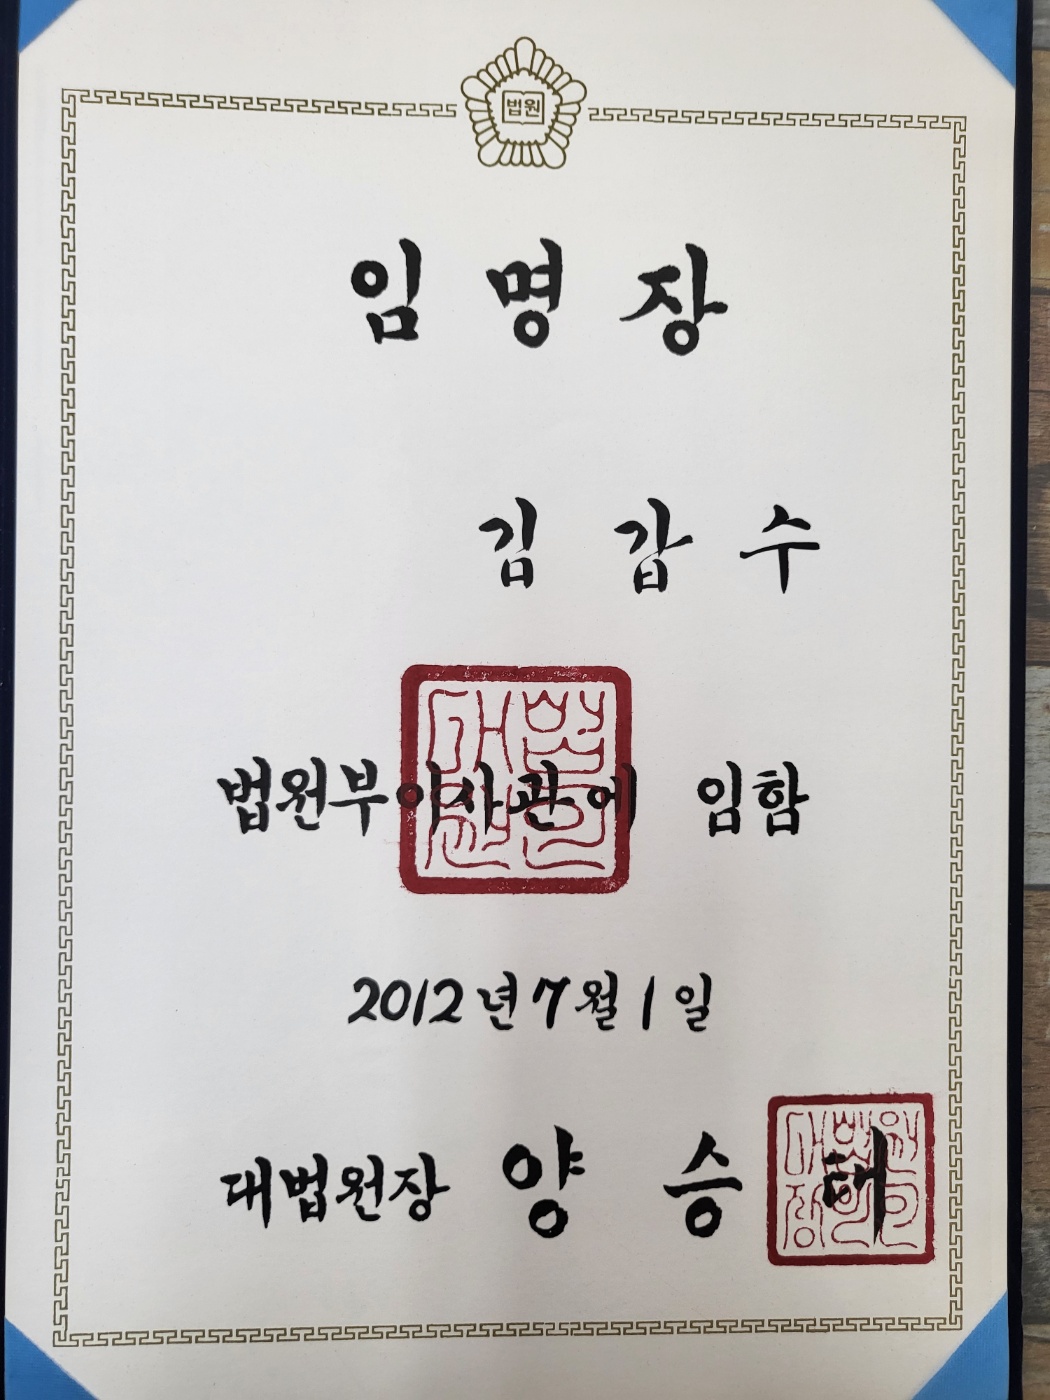 법원
임명장
김갑수
법원부이사관에 임함
2012년 7월 1일
대법원장 양승태